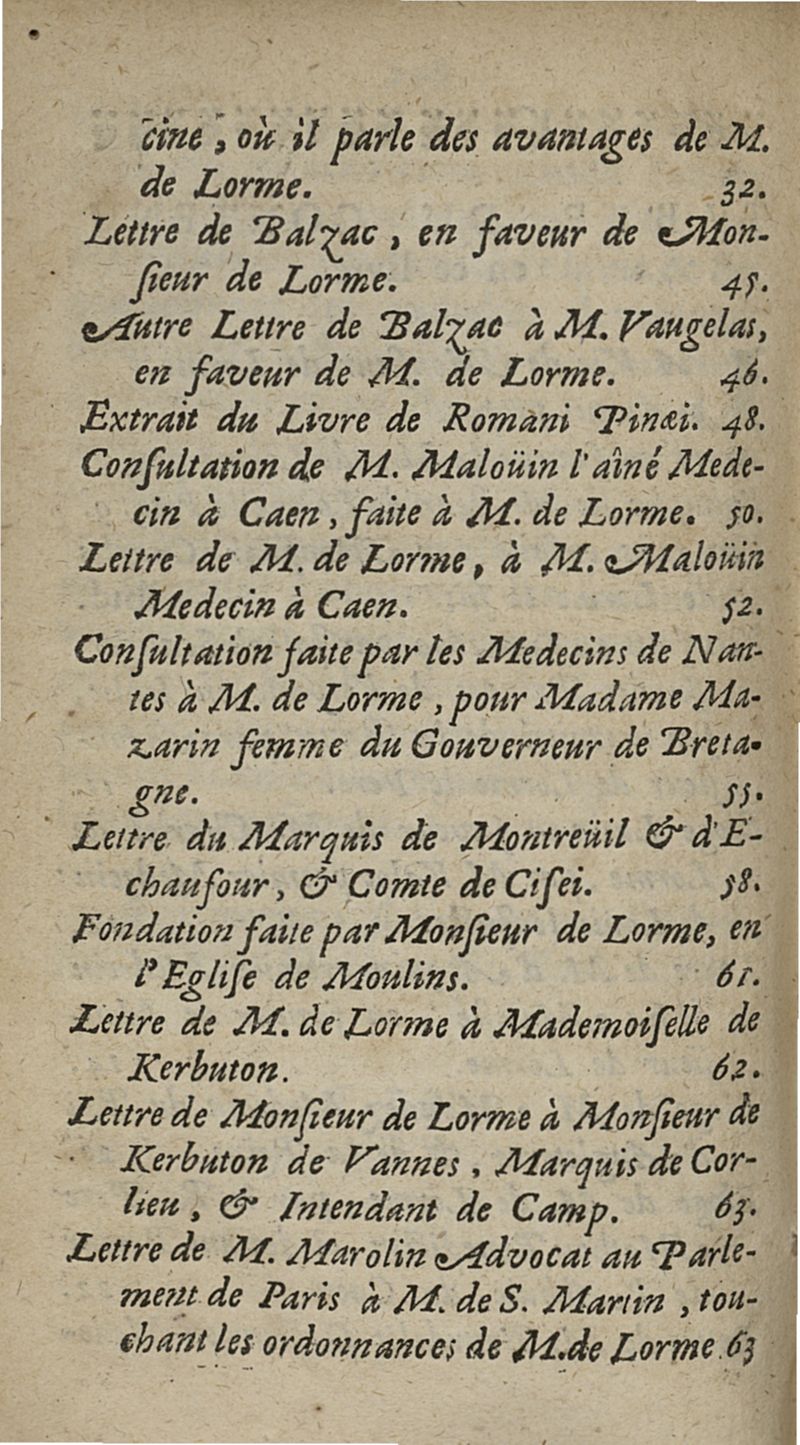 cine, où il parle des avantages de M.
de Lorme. 32.
Lettre de Balzac, en faveur de Mon-
ſieur de Lorme. 45.
Autre Lettre de Balzac à M. Vaugelas,
en faveur de M. de Lorme. 46.
Extrait du Livre de Romani Pinæi. 48.
Conſultation de M. Maloüin l'aîné Mede-
cin à Caen, faite à M. de Lorme. 50.
Lettre de M. de Lorme, à M. Maloüin
Medecin à Caen. 52.
Conſultation faite par les Medecins de Nan-
tes à M. de Lorme, pour Madame Ma-
zarin femme du Gouverneur de Breta-
gne. 55.
Lettre du Marquis de Montreüil & d'E-
chaufour, & Comte de Ciſei. 58.
Fondation faite par Monſieur de Lorme, en
l'Egliſe de Moulins. 61.
Lettre de M. de Lorme à Mademoiſelle de
Kerbuton. 62.
Lettre de Monſieur de Lorme à Monſieur de
Kerbuton de Vannes, Marquis de Cor-
lieu, & Intendant de Camp. 63.
Lettre de M. Marolin Advocat au Parle-
ment de Paris à M. de S. Martin, tou-
chant les ordonnances de M. de Lorme. 63